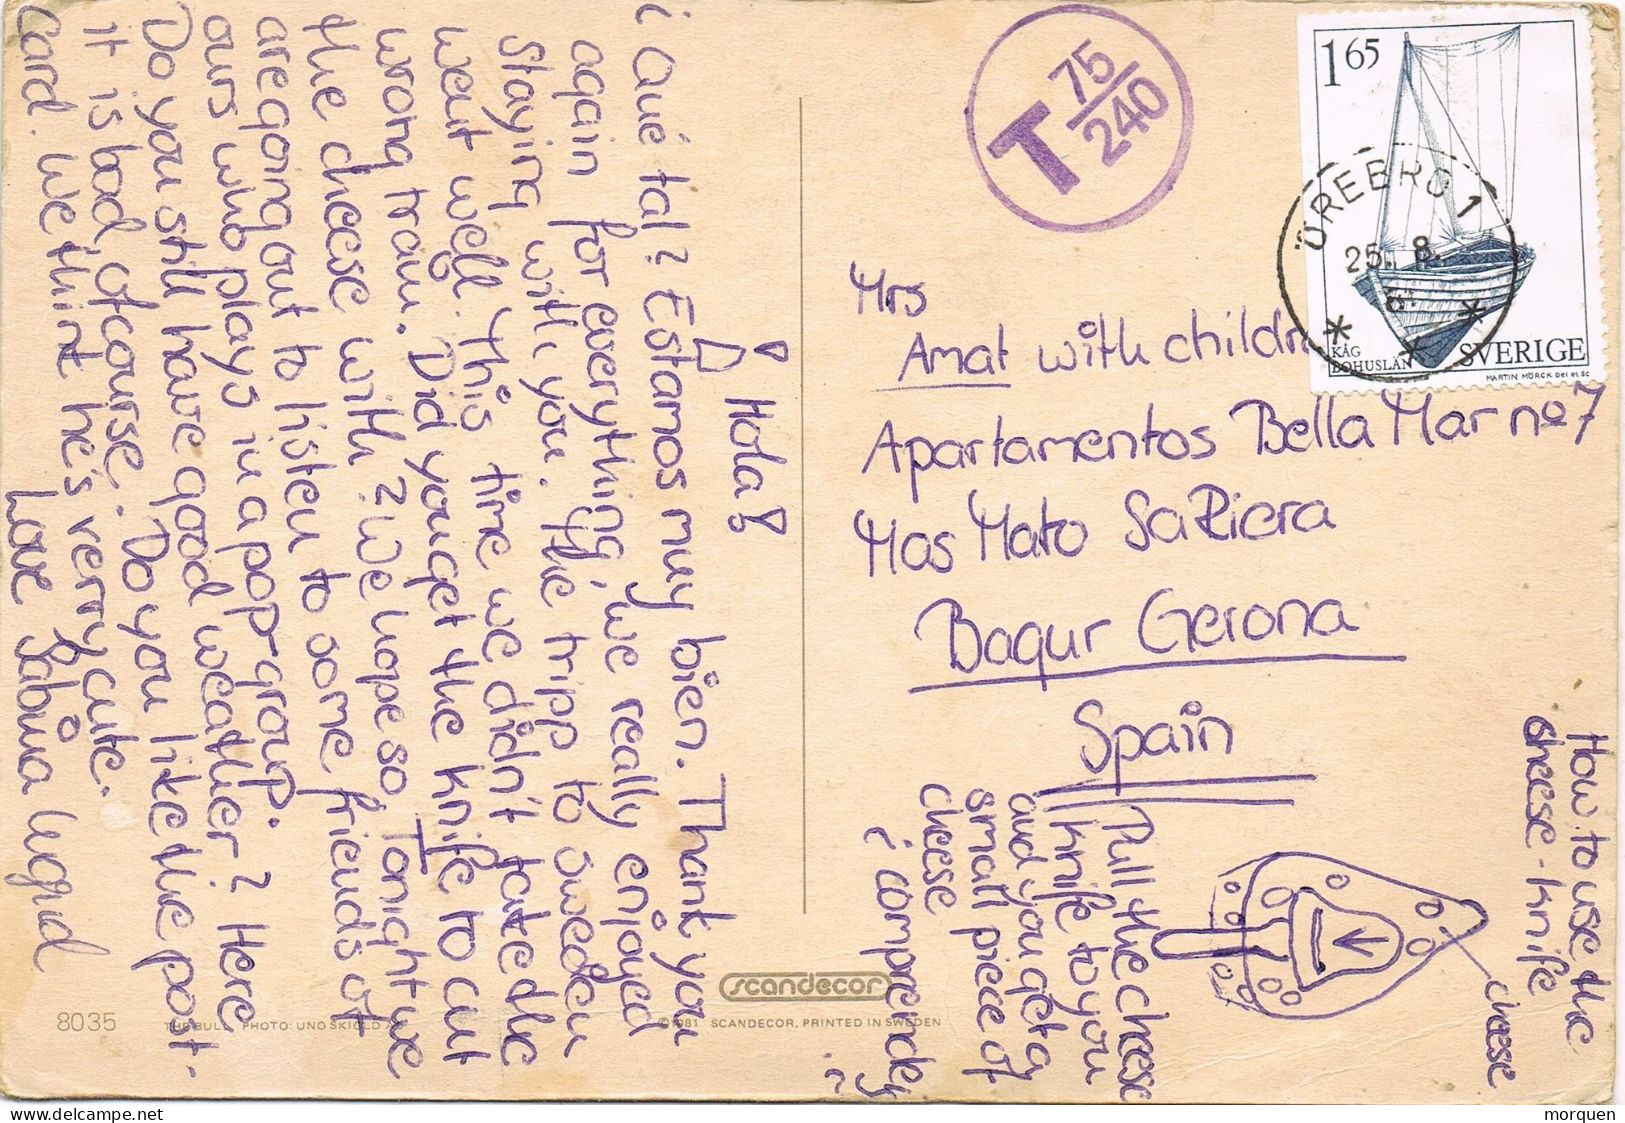 ¡Hola!
¿Qué tal? Estamos muy bien. Thank you
again for everything, we really enjoyed
staying with you. The tripp to Sweden
went well. This time we didn't take the
wrong train. Did you get the knife to cut
the cheese with? We hope so. Tonight we
are going out to listen to some friends of
ours who plays in a pop-group.
Do you still have good weather? Here
it is bad of course. Do you like the post-
card. We think he's very cute.
Love Sabina
T 75/240
1 65
KÅG
BOHUSLÄN
SVERIGE
MARTIN MÖRCK Del et SC
ÖREBRO 1
25. 8.
81
Mrs
Amat with children
Apartamentos Bella Mar nº 7
Mas Mato Sa Riera
Bagur Gerona
Spain
How to use the
cheese-knife
cheese
Pull the cheese
knife to you
and you get a
small piece of
cheese
¿comprendes?
scandecor
8035
THE BULL PHOTO: UNO SKIÖLD
©1981 SCANDECOR, PRINTED IN SWEDEN
www.delcampe.net
morquen